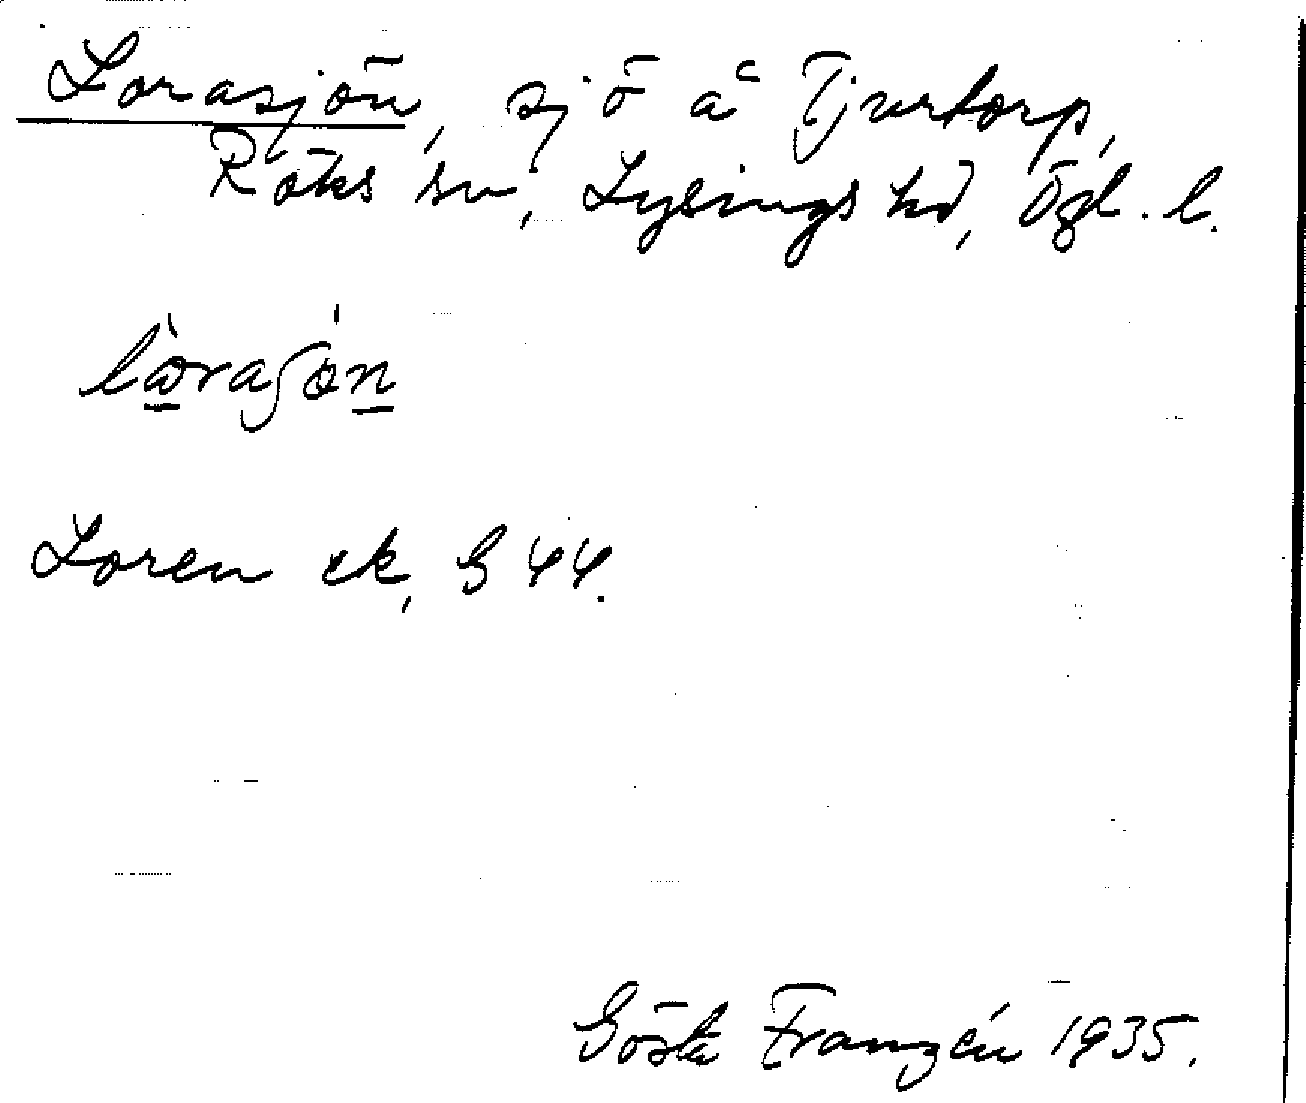 Lorasjön, sjö å Tjurtorp,
Röks sn, Lysings hd, Ögl. l.
Loren ek, G 44.
Gösta Franzén 1935.